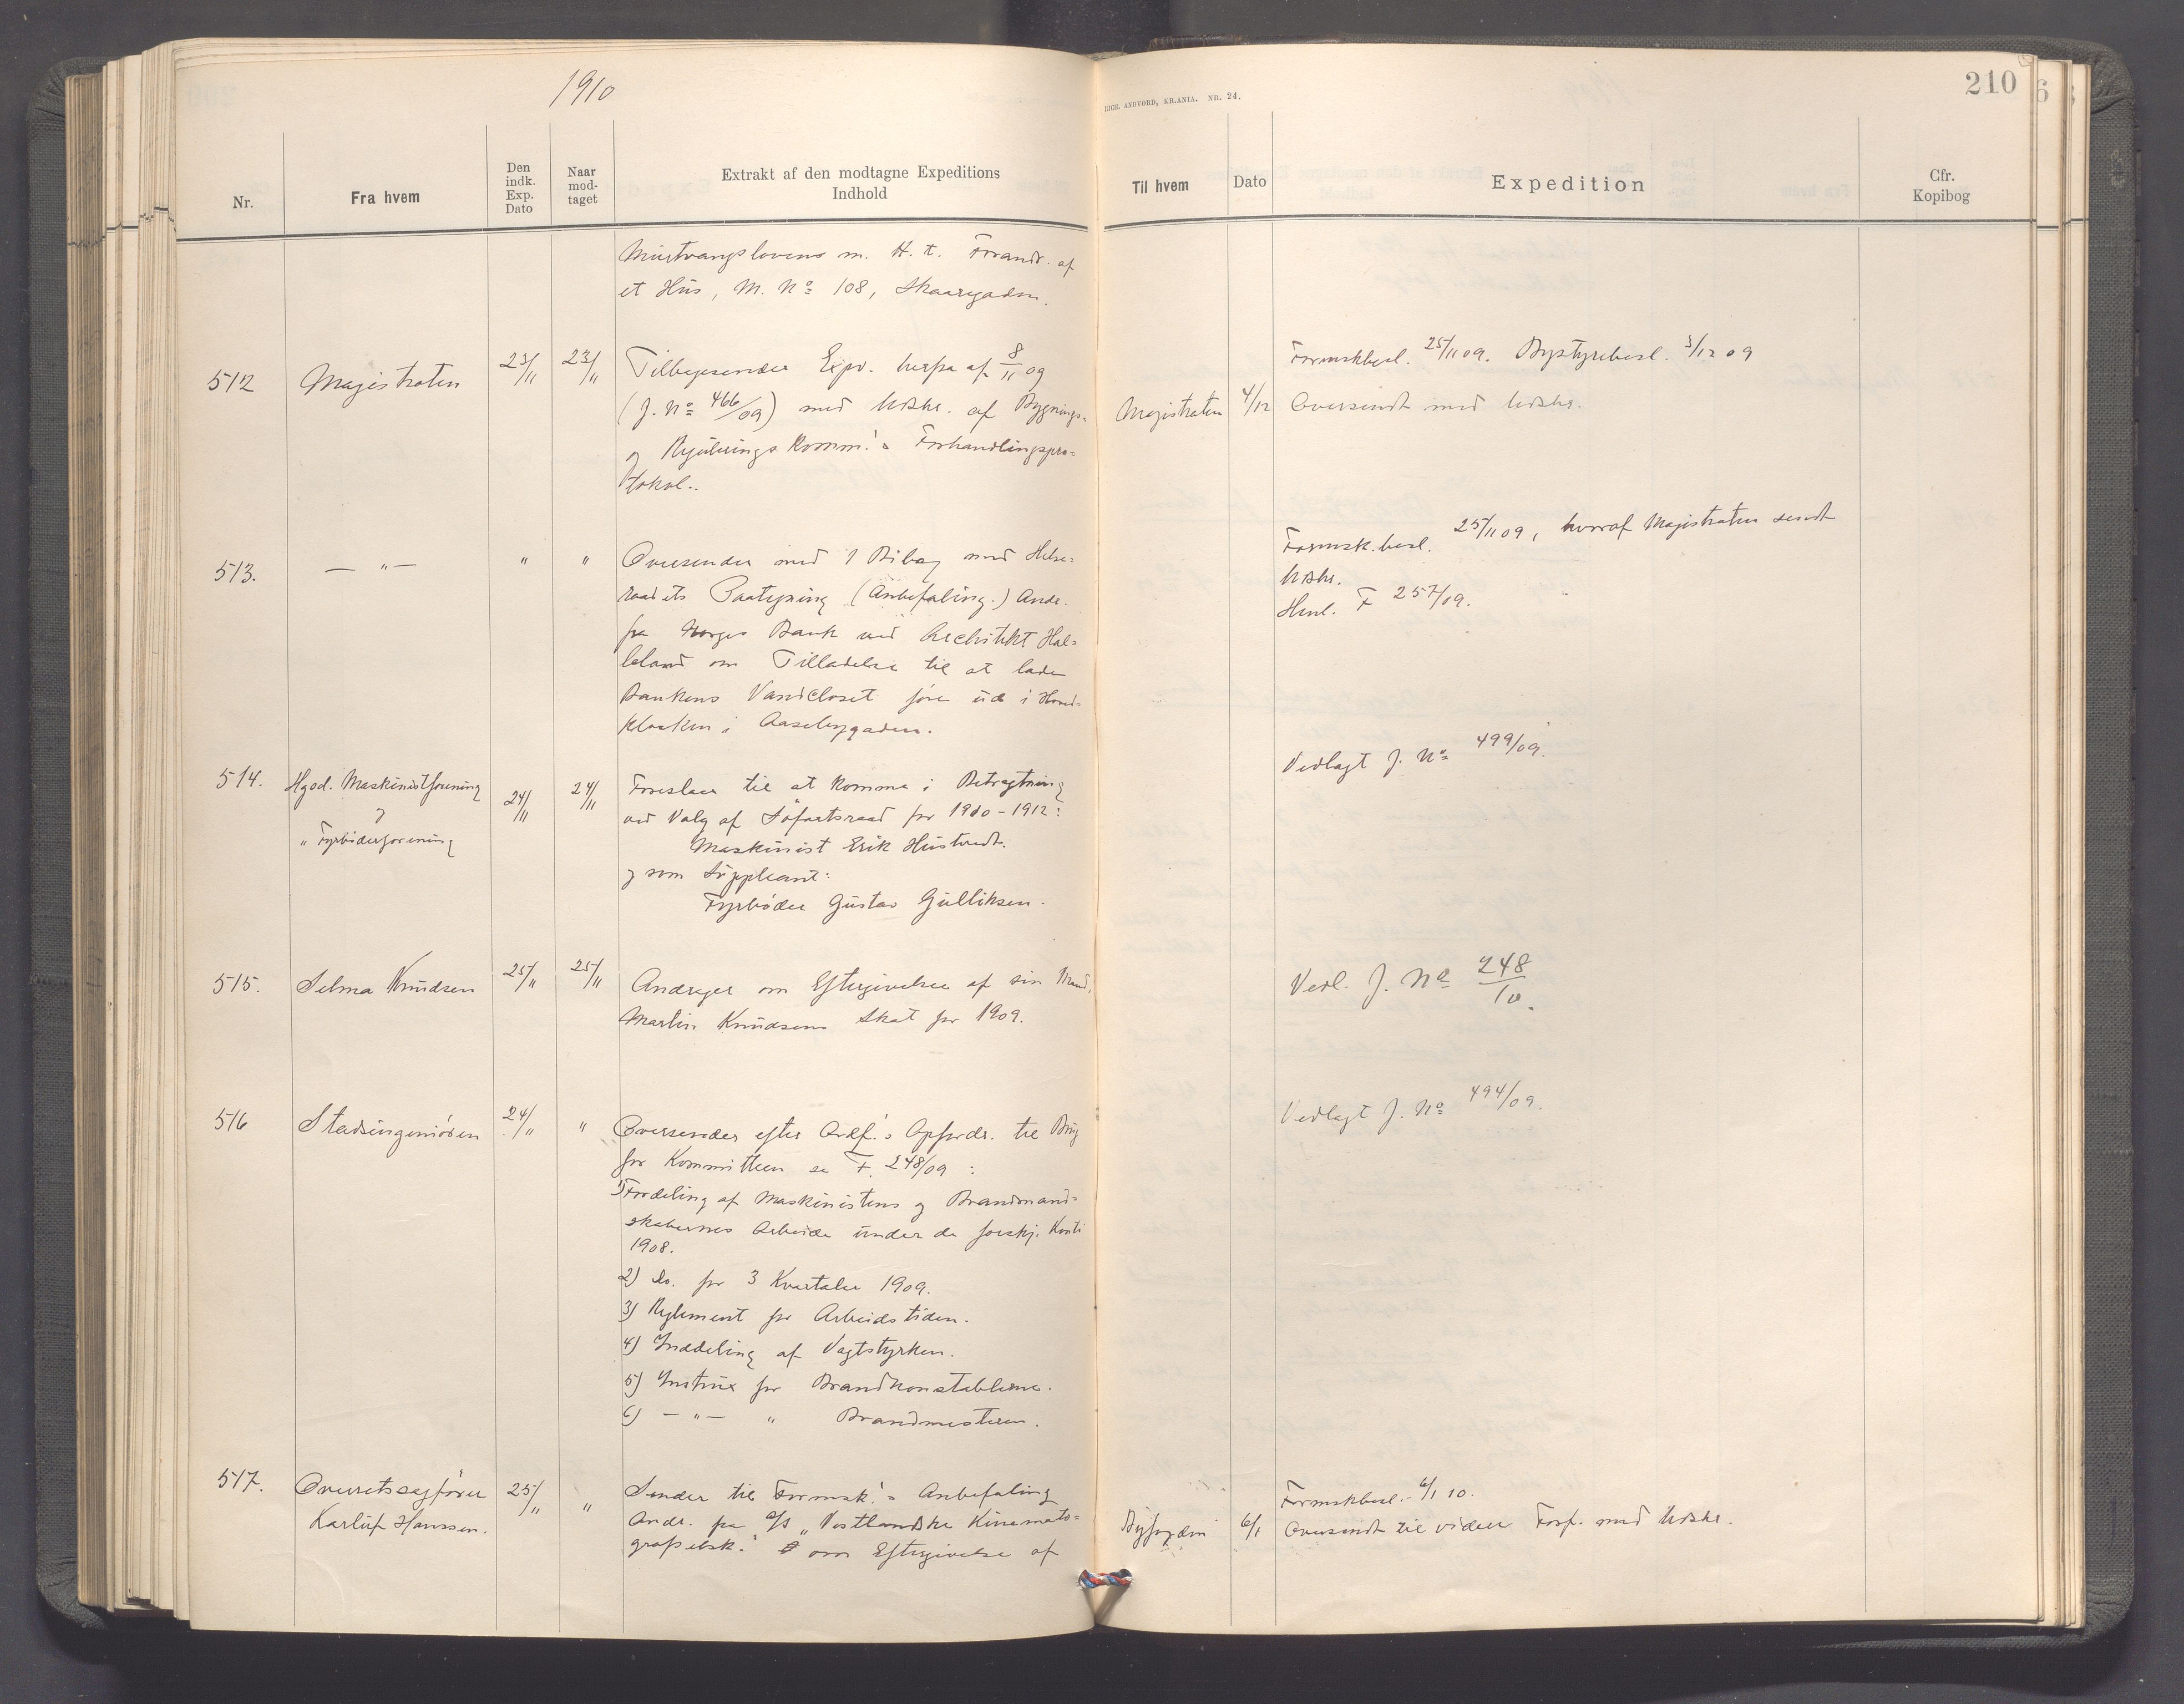 1910
RICH. ANDVORD, KR.ANIA. NR. 24.
210
Nr.
Fra hvem
Den indk. Exp. Dato
Naar mod-taget
Extrakt af den modtagne Expeditions
Indhold
Til hvem
Dato
Expedition
Cfr.
Kopibog
Murtvangslovens m. H. t. Forandr. af
et Hus, M. No 108, Skaaregaden.
512
Magistraten
23/11
23/11
Tilbagesender Exp. herfra af 8/11 09
(J. No 466/09) med Udskr. af Bygnings-
og Reguleringskomm.'s Forhandlingspro=
tokol.
Formskbesl. 25/11 09. Bystyrebesl. 3/12 09
Magistraten 4/12 Oversendt med Udskr.
513.
— " —
"
"
Oversender med 1 Bilag med Helse=
raadets Paategning (Anbefaling.) Andr.
fra Norges Bank ved Architekt Hal=
leland om Tilladelse til at lade
Bankens Vandcloset føre ud i Hoved=
kloaken i Aasebygaden.
Formsk.besl. 25/11 09, hvoraf Magistraten sendt
Udskr.
Henl. F 257/09.
514.
Hgsd. Maskinistforening
og
" Fyrbøderforening
24/11
24/11
Foreslaar til at komme i Betragtning
ved Valg af Søfartsraad for 1910-1912:
Maskinist Erik Hustvedt.
og som Suppleant:
Fyrbøder Gustav Gulliksen.
Vedlagt J. No 499/09.
515.
Selma Knudsen
25/11
25/11
Andrager om Eftergivelse af sin Mand,
Martin Knudsens Skat for 1909.
Vedl. J. No 248/10.
516
Stadsingeniøren
24/11
"
Oversender efter Ordf.'s Opfordr. til Brug
for Kommitteen se F. 248/09 :
1) Fordeling af Maskinistens og Brandmand=
skabernes Arbeide under de forskj. Konti
1908.
2) Do. for 3 Kvartaler 1909.
3) Reglement for Arbeidstiden.
4) Inddeling af Vagtstyrken.
5) Instrux for Brandkonstablerne.
6) — " — " Brandmesteren.
Vedlagt J. No 494/09.
517.
Overretssagfører
Karluf Hanssen.
25/11
"
Sender til Formsk.'s Anbefaling
Andr. fra A/S "Vestlandske Kinemato=
grafselsk." om Eftergivelse af
Formskbesl. 6/1 10.
Byfogden 6/1 Oversendt til videre Forf. med Udskr.